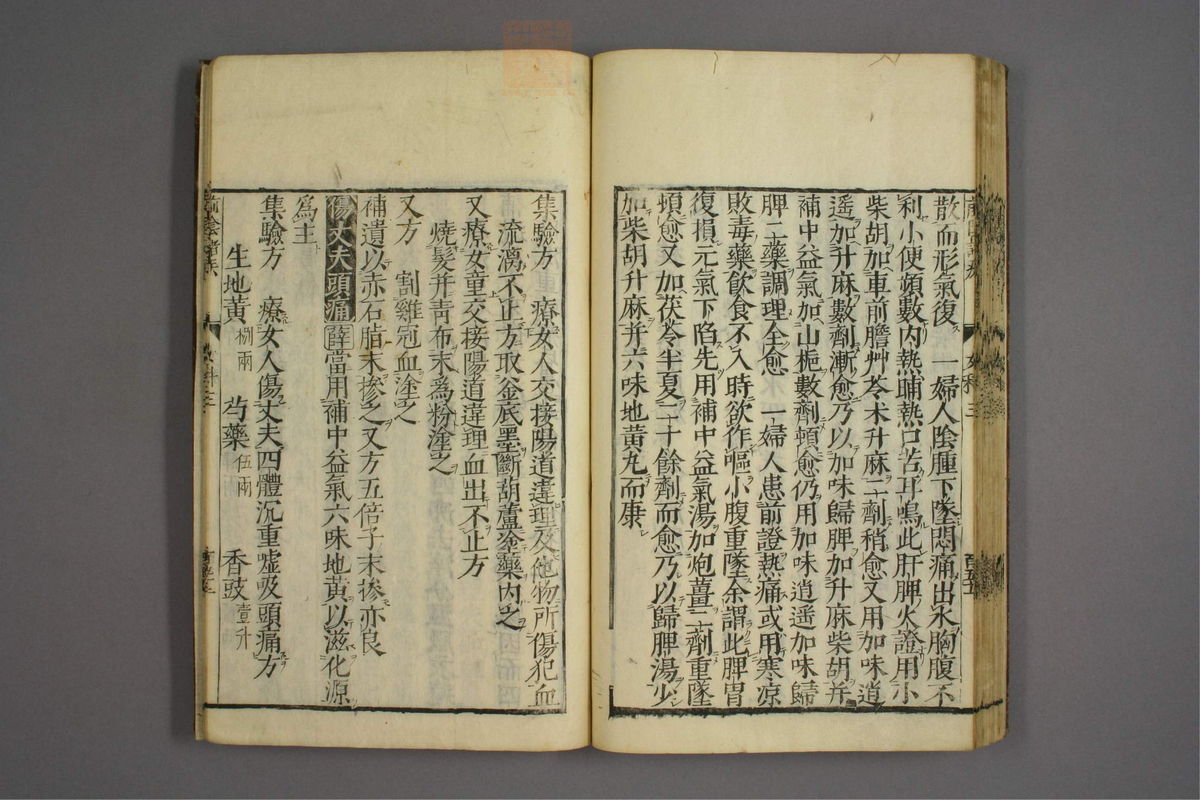 散而形氣復 一婦人陰腫下墜悶痛出水胸腹不
利小便頻數內熱晡熱口苦耳鳴此肝脾火證用小
柴胡加車前膽艸苓朮升麻二劑稍愈又用加味逍
遥加升麻數劑漸愈乃以加味歸脾加升麻柴胡并
補中益氣加山梔數劑頓愈仍用加味逍遥加味歸
脾二藥調理全愈 一婦人患前證熱痛或用寒凉
敗毒藥飲食不入時欲作嘔小腹重墜余謂此脾胃
復損元氣下陷先用補中益氣湯加炮薑二劑重墜
頓愈又加茯苓半夏二十餘劑而愈乃以歸脾湯少
加柴胡升麻并六味地黃丸而康
集驗方 療女人交接陽道違理及他物所傷犯血
流漓不止方取釜底墨斷胡蘆塗藥內之
又療女童交接陽道違理血出不止方
燒髮并青布末爲粉塗之
又方 割雞冠血塗之
補遺以赤石脂末摻之又方五倍子末摻亦良
傷丈夫頭痛 薛當用補中益氣六味地黃以滋化源
爲主
集驗方 療女人傷丈夫四體沉重噓吸頭痛方
生地黃 捌兩 芍藥 伍兩 香豉 壹升